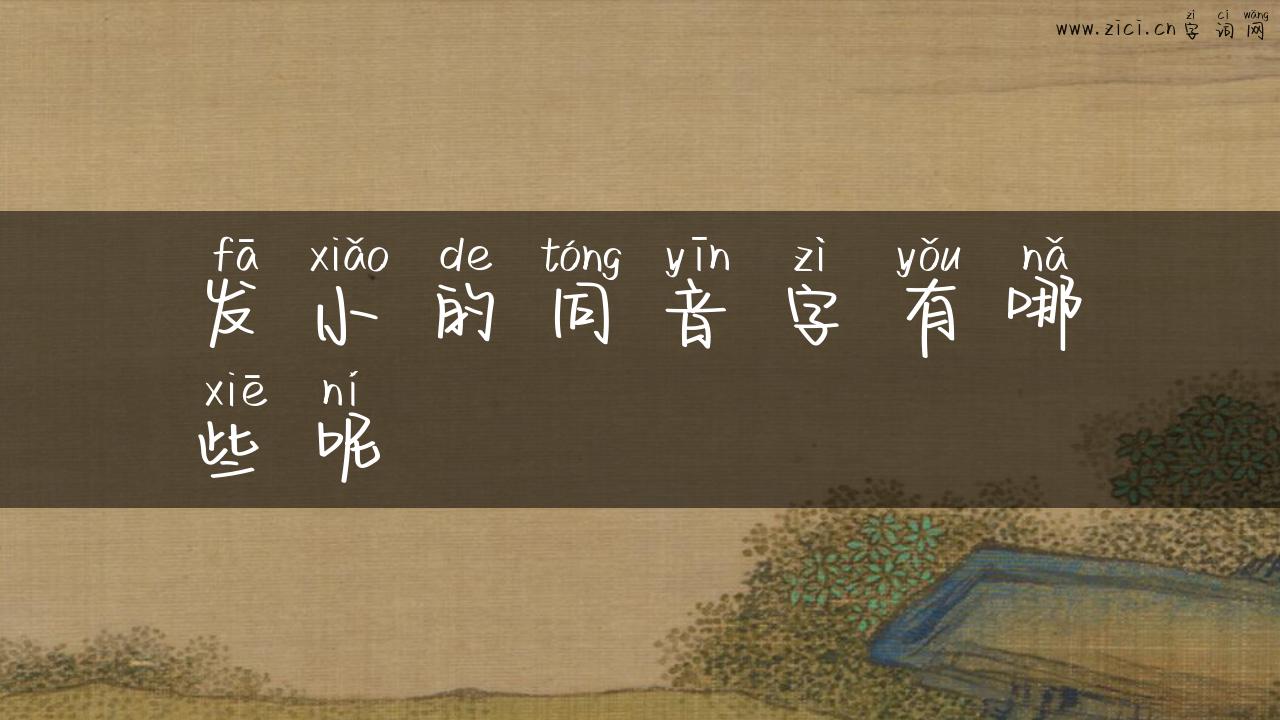 zì cí wǎng
www.zici.cn 字 词 网
fā xiǎo de tóng yīn zì yǒu nǎ
发 小 的 同 音 字 有 哪
xiē ní
些 呢